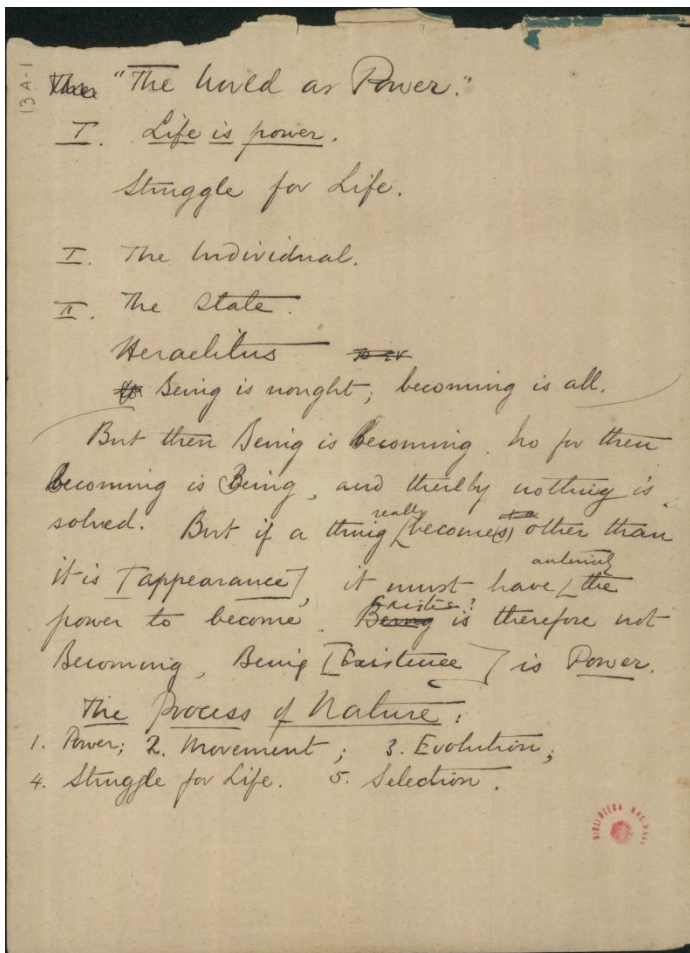 13A-1
"The World as Power."
I. Life is power.
Struggle for Life.
I. The Individual.
II. The State.
Heraclitus
Being is nought; becoming is all.
But then Being is becoming. So for then
becoming is Being, and thereby nothing is
solved. But if a thing [really become(s) other than
it is [appearance], it must have [anteriorly the
power to become. Existce? is therefore not
Becoming, Being [Existence] is Power.
The Process of Nature:
1. Power; 2. Movement; 3. Evolution;
4. Struggle for Life. 5. Selection.
BIBLIOTECA NACIONAL